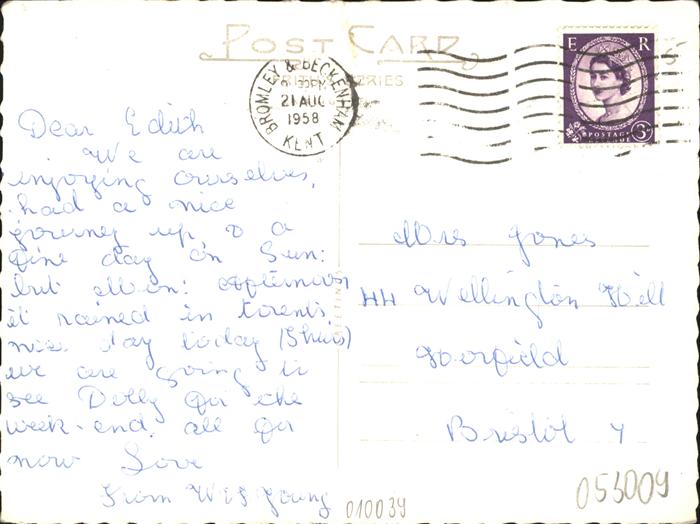 POST CARD
BROMLEY & BECKENHAM
21 AUG
1958
KENT
E R
POSTAGE
3D
Dear Edith
We are
enjoying ourselves,
had a nice
journey up & a
fine day on Sun:
but Mon: afternoon
it rained in torents
nice day today (Thurs)
we are going to
see Dolly for the
week-end. all for
now Love
From W & F Young
Mrs Jones
44 Wellington Hill
Horfield
Bristol 7
010039
053009